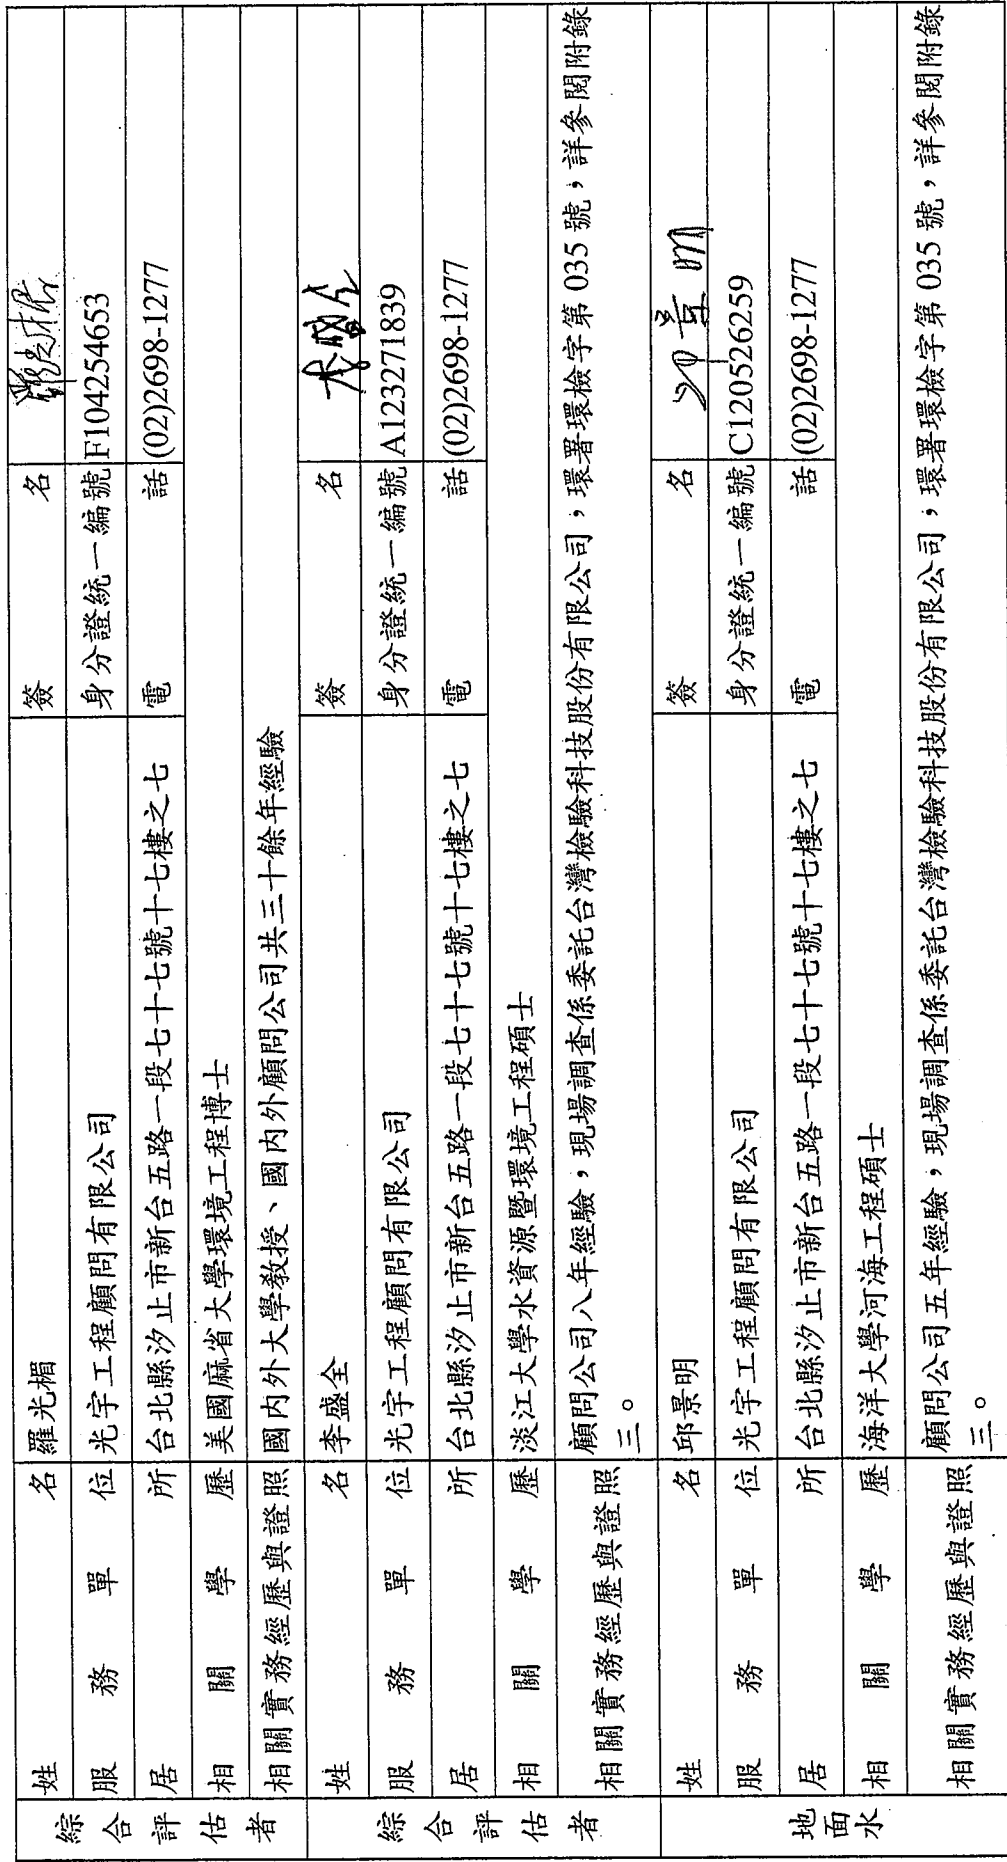 綜合評估者
姓名 羅光楣 簽名
服務單位 光宇工程顧問有限公司 身分證統一編號 F104254653
居所 台北縣汐止市新台五路一段七十七號十七樓之七 電話 (02)2698-1277
相關學歷 美國麻省大學環境工程博士
相關實務經歷與證照 國內外大學教授、國內外顧問公司共三十餘年經驗
綜合評估者
姓名 李盛全 簽名
服務單位 光宇工程顧問有限公司 身分證統一編號 A123271839
居所 台北縣汐止市新台五路一段七十七號十七樓之七 電話 (02)2698-1277
相關學歷 淡江大學水資源暨環境工程碩士
相關實務經歷與證照 顧問公司八年經驗，現場調查係委託台灣檢驗科技股份有限公司，環署環檢字第 035 號，詳參閱附錄
三。
地面水
姓名 邱景明 簽名 邱景明
服務單位 光宇工程顧問有限公司 身分證統一編號 C120526259
居所 台北縣汐止市新台五路一段七十七號十七樓之七 電話 (02)2698-1277
相關學歷 海洋大學河海工程碩士
相關實務經歷與證照 顧問公司五年經驗，現場調查係委託台灣檢驗科技股份有限公司，環署環檢字第 035 號，詳參閱附錄
三。